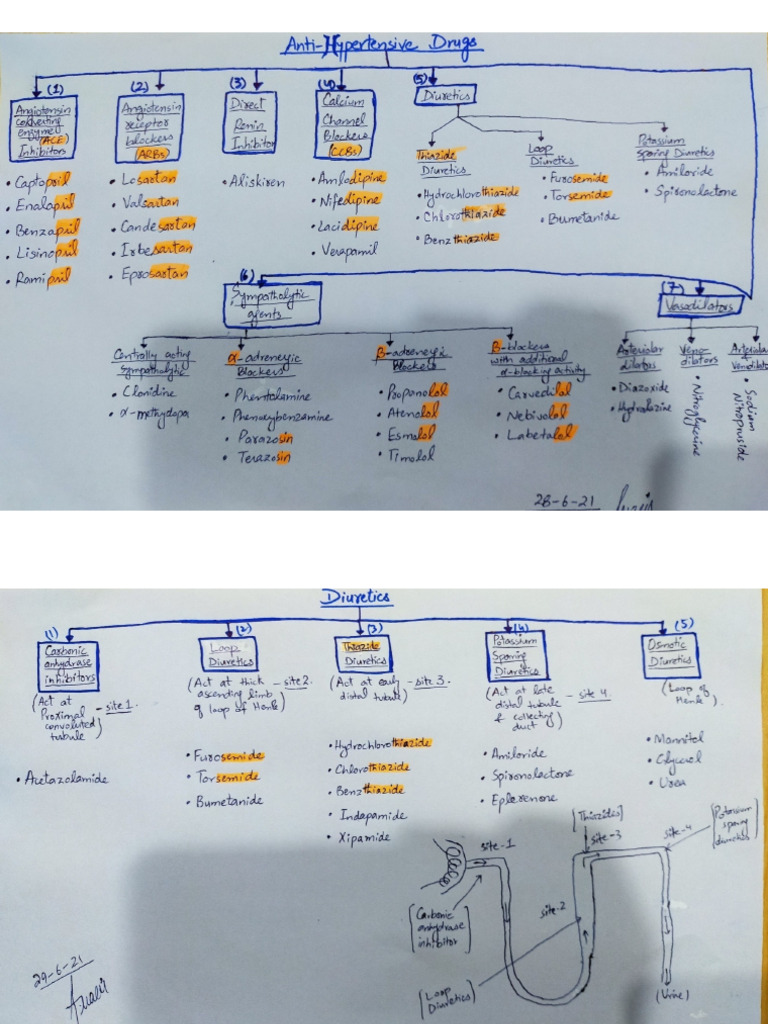 Anti-Hypertensive Drugs
(1)
Angiotensin
converting
enzyme
(ACE)
Inhibitors
• Captopril
• Enalapril
• Benzapril
• Lisinopril
• Ramipril
(2)
Angiotensin
receptor
blockers
(ARBs)
• Losartan
• Valsartan
• Candesartan
• Irbesartan
• Eprosartan
(3)
Direct
Renin
Inhibitor
• Aliskiren
(4)
Calcium
Channel
Blockers
(CCBs)
• Amlodipine
• Nifedipine
• Lacidipine
• Verapamil
(5)
Diuretics
Thiazide
Diuretics
• Hydrochlorothiazide
• Chlorothiazide
• Benzthiazide
Loop
Diuretics
• Furosemide
• Torsemide
• Bumetanide
Potassium
sparing Diuretics
• Amiloride
• Spironolactone
(6)
Sympatholytic
agents
Centrally acting
Sympatholytic
• Clonidine
• α-methydopa
α-adrenergic
Blockers
• Phentolamine
• Phenoxybenzamine
• Parazosin
• Terazosin
β-adrenergic
Blockers
• Propanolol
• Atenolol
• Esmolol
• Timolol
β-blockers
with additional
α-blocking activity
• Carvedilol
• Nebivolol
• Labetalol
(7)
Vasodilators
Arteriolar
dilators
• Diazoxide
• Hydralazine
Veno-
dilators
• Nitroglycerine
• Sodium
Nitroprusside
28-6-21
Diuretics
(1)
Carbonic
anhydrase
inhibitors
(Act at
Proximal
convoluted
tubule) - site 1.
• Acetazolamide
(2)
Loop
Diuretics
(Act at thick - site 2.
ascending limb
of loop of Henle)
• Furosemide
• Torsemide
• Bumetanide
(3)
Thiazide
Diuretics
(Act at early - site 3.
distal tubule)
• Hydrochlorothiazide
• Chlorothiazide
• Benzthiazide
• Indapamide
• Xipamide
(4)
Potassium
Sparing
Diuretics
(Act at late
distal tubule - site 4.
& collecting
duct)
• Amiloride
• Spironolactone
• Eplerenone
(5)
Osmotic
Diuretics
(Loop of
Henle).
• Mannitol
• Glycerol
• Urea
site-1
[Thiazides]
site-3
site-4
[Potassium
sparing
diuretics]
[Carbonic
anhydrase
inhibitor]
site-2
[Loop
Diuretics]
(Urine)
29-6-21